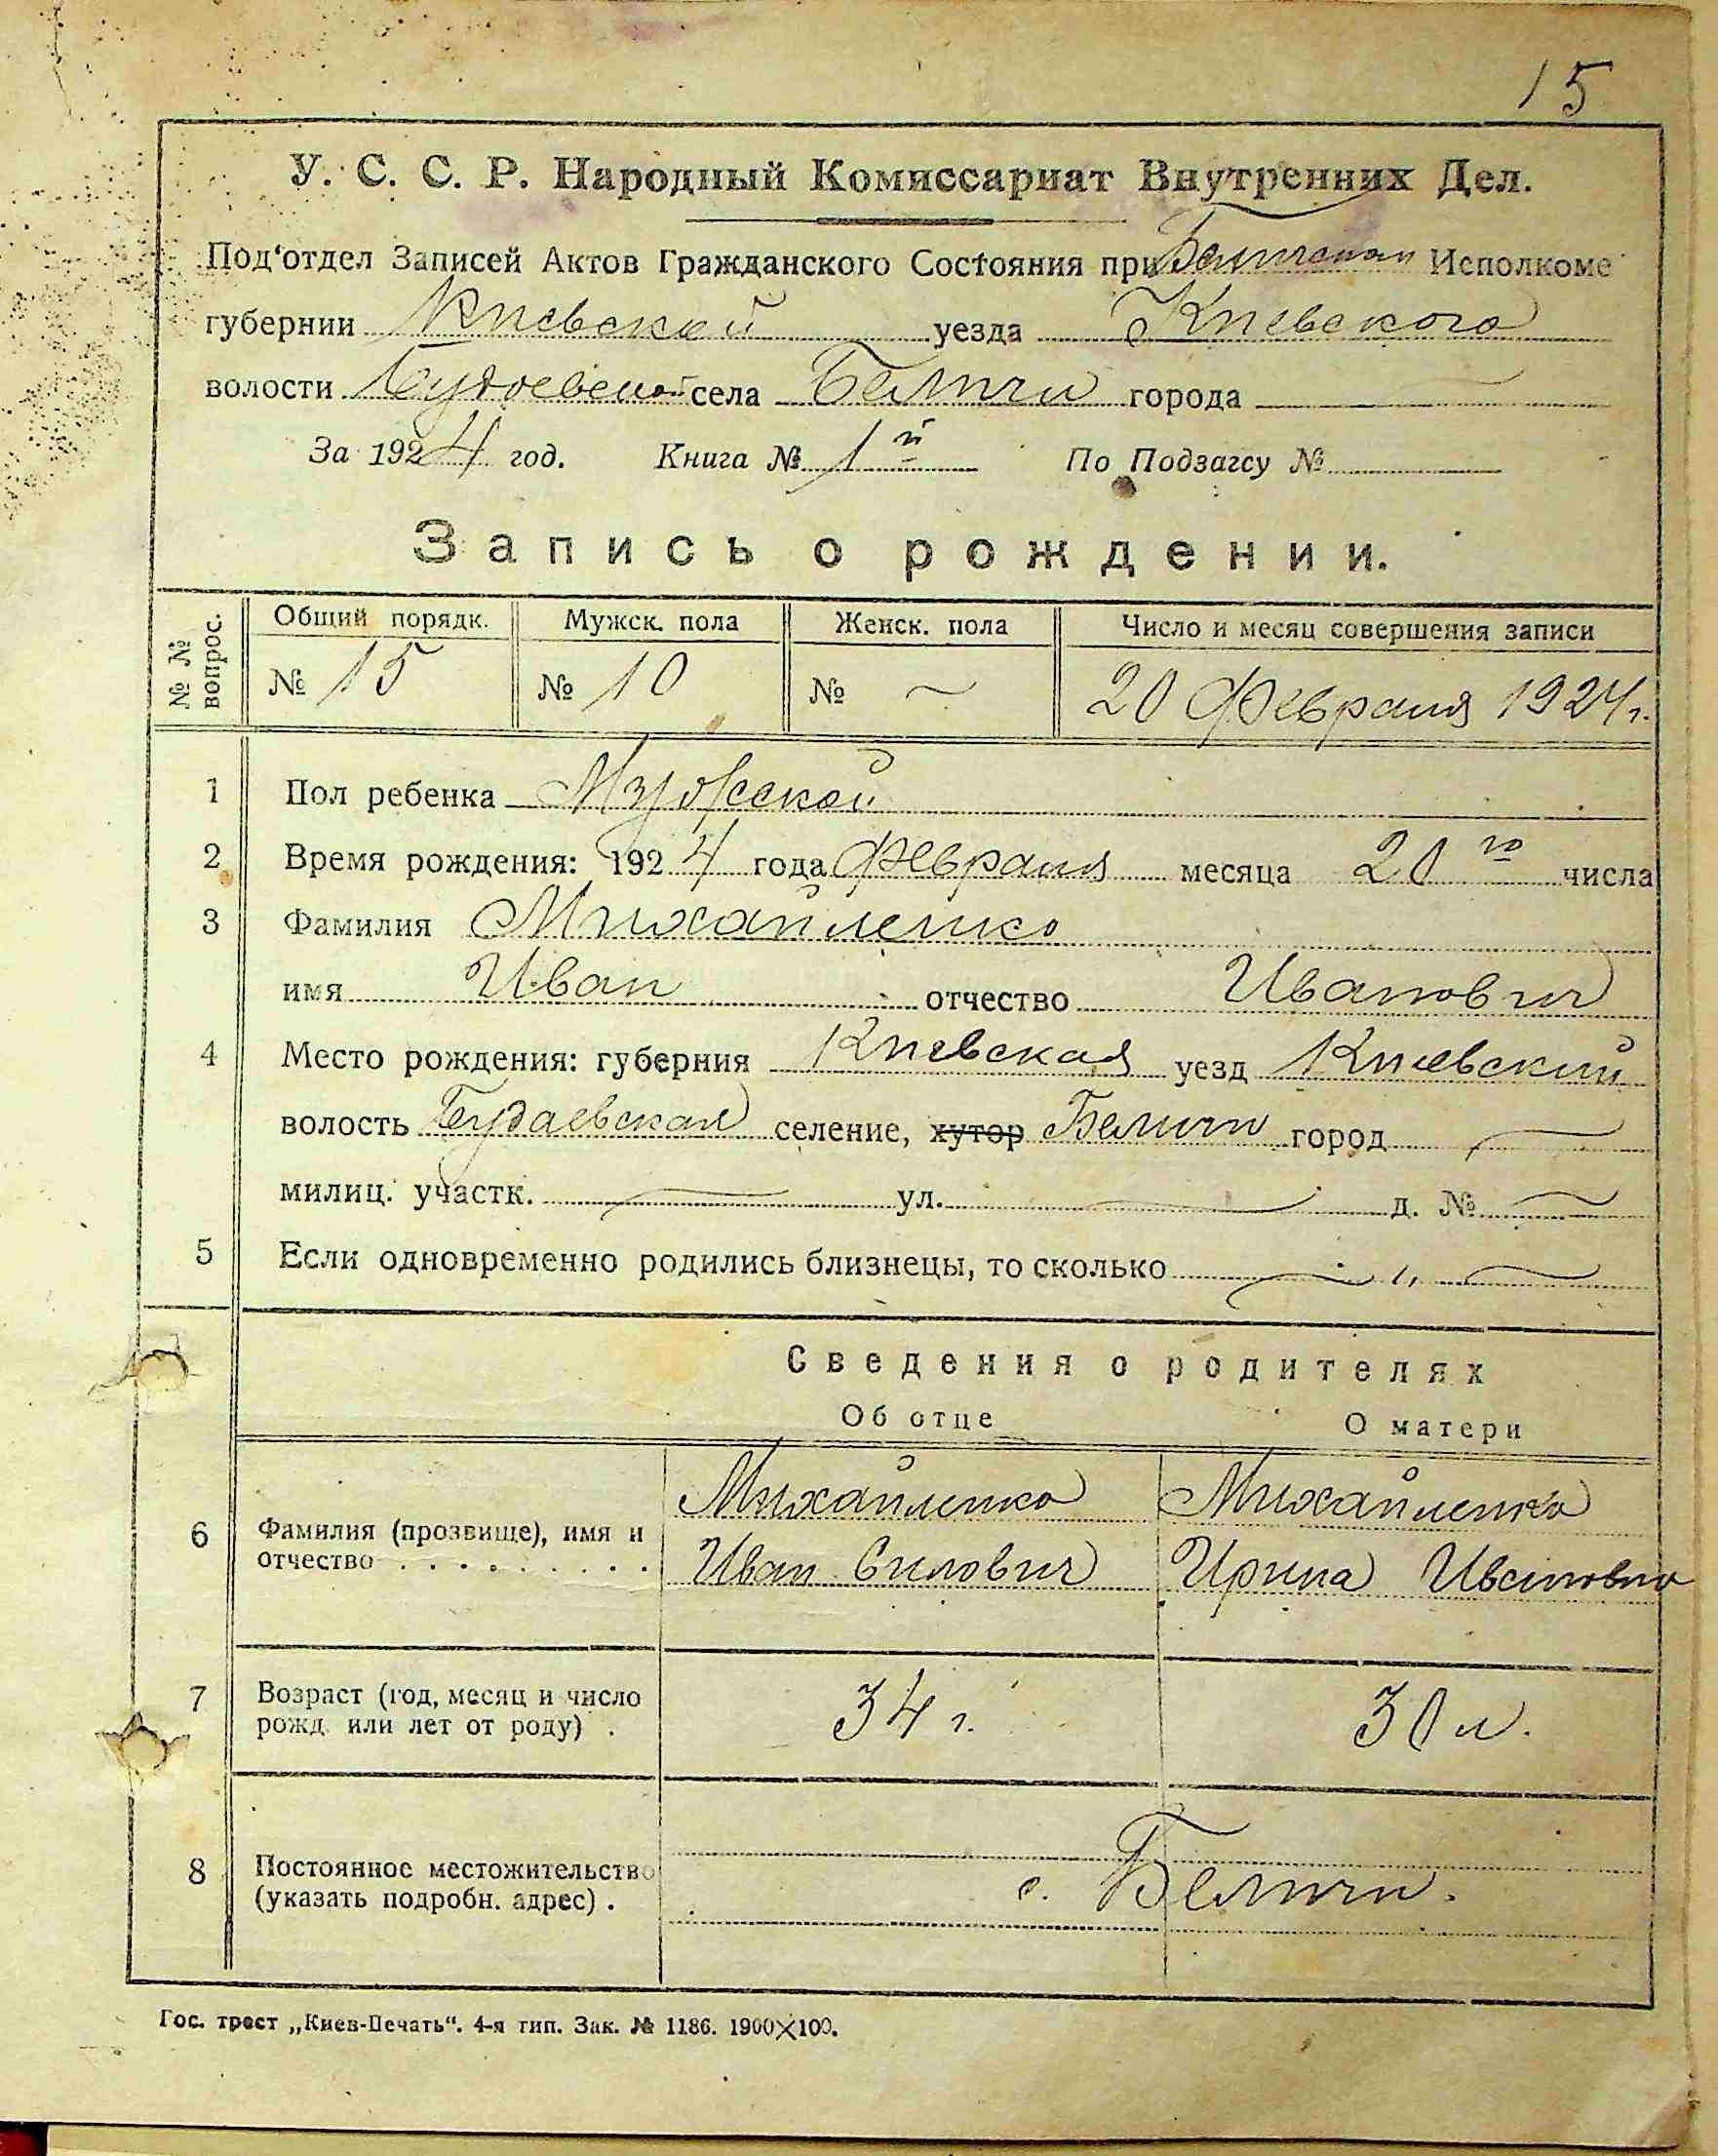 15
У. С. С. Р. Народный Комиссариат Внутренних Дел.
Под'отдел Записей Актов Гражданского Состояния при Беличском Исполкоме
губернии Киевской уезда Киевского
волости Будаевской села Беличи города —
За 1924 год. Книга № 1й По Подзагсу №
Запись о рождении.
№ № вопрос. Общий порядк. Мужск. пола Женск. пола Число и месяц совершения записи
№ 15 № 10 № — 20 Февраля 1924 г.
1 Пол ребенка Мужской
2 Время рождения: 1924 года Февраля месяца 20го числа
3 Фамилия Михайленко
имя Иван отчество Иванович
4 Место рождения: губерния Киевская уезд Киевский
волость Будаевская селение, хутор Беличи город —
милиц. участк. — ул. — д. № —
5 Если одновременно родились близнецы, то сколько — „ —
Сведения о родителях
Об отце О матери
Михайленко Михайленко
6 Фамилия (прозвище), имя и
отчество . . . . . . . . . Иван Силович Ирина Ивановна
7 Возраст (год, месяц и число
рожд. или лет от роду) . 34 г. 30 л.
8 Постоянное местожительство
(указать подробн. адрес) . с. Беличи.
Гос. трест „Киев-Печать“. 4-я тип. Зак. № 1186. 1900×100.